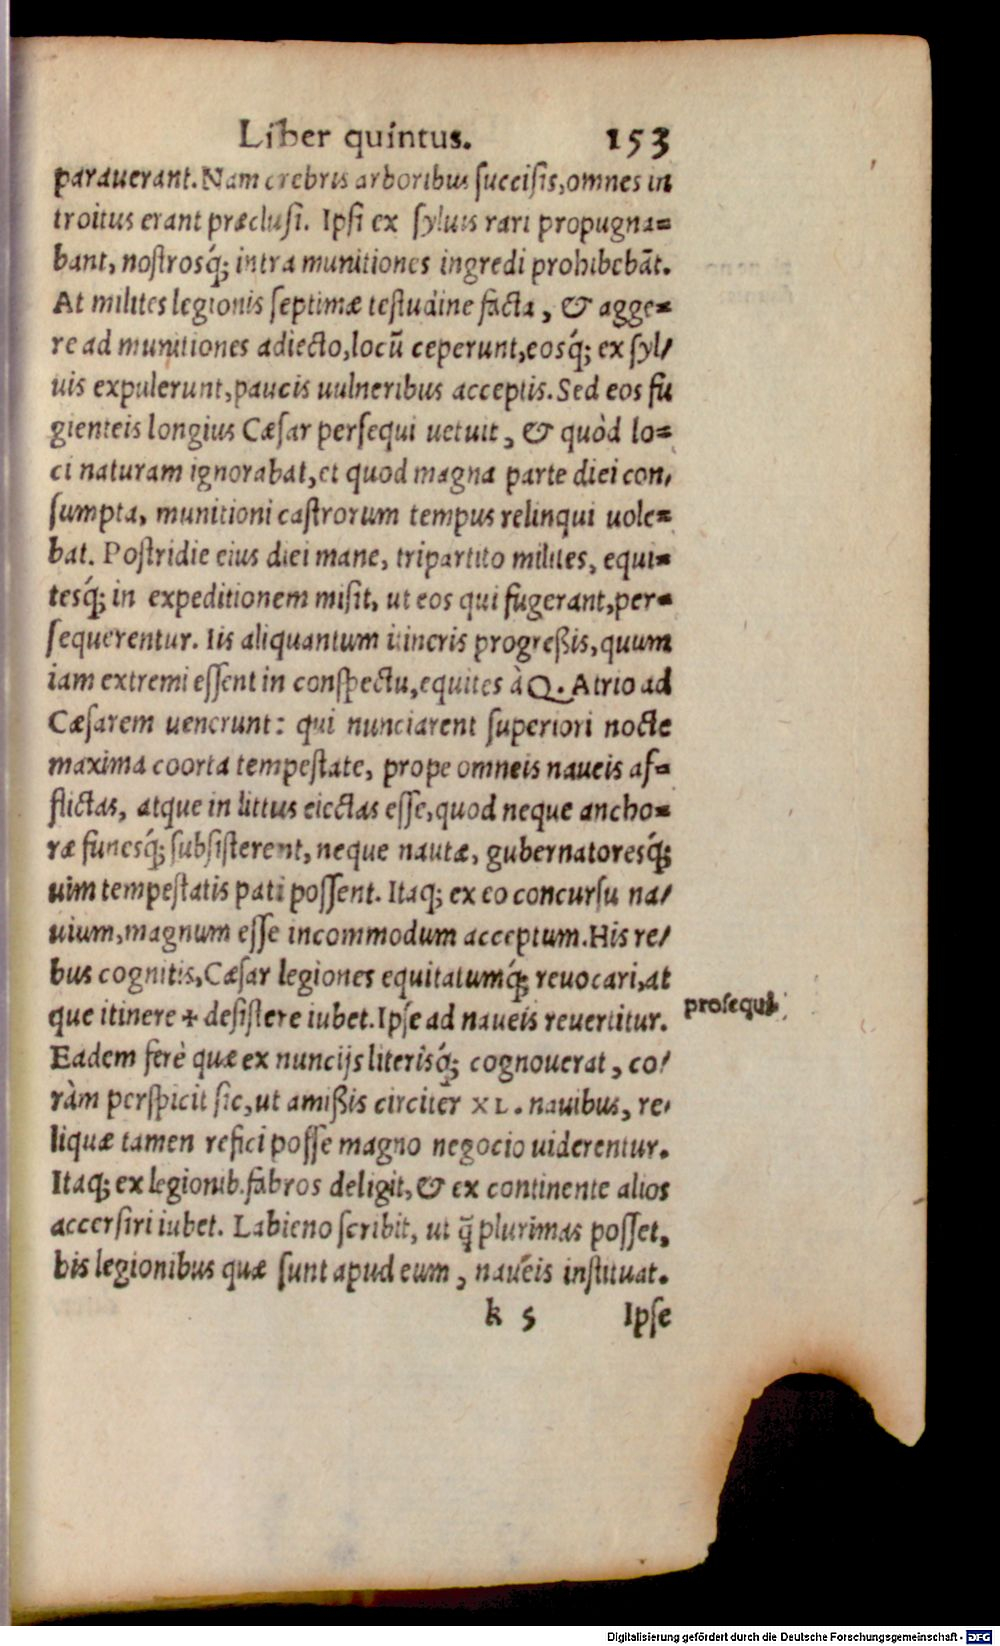 Liber quintus. 153
parauerant. Nam crebris arboribus succisis, omnes in
troitus erant præclusi. Ipsi ex syluis rari propugna=
bant, nostrosq́; intra munitiones ingredi prohibebāt.
At milites legionis septimæ testudine facta, & agge=
re ad munitiones adiecto, locū ceperunt, eosq́; ex syl/
uis expulerunt, paucis uulneribus acceptis. Sed eos fu
gienteis longius Cæsar persequi uetuit, & quòd lo=
ci naturam ignorabat, et quod magna parte diei con/
sumpta, munitioni castrorum tempus relinqui uole=
bat. Postridie eius diei mane, tripartito milites, equi=
tesq́; in expeditionem misit, ut eos qui fugerant, per=
sequerentur. Iis aliquantum itineris progreßis, quum
iam extremi essent in conspectu, equites à Q. Atrio ad
Cæsarem uenerunt: qui nunciarent superiori nocte
maxima coorta tempestate, prope omneis naueis af=
flictas, atque in littus eiectas esse, quod neque ancho=
ræ funesq́; subsisterent, neque nautæ, gubernatoresq́;
uim tempestatis pati possent. Itaq; ex eo concursu na/
uium, magnum esse incommodum acceptum. His re/
bus cognitis, Cæsar legiones equitatumq́; reuocari, at
que itinere ✢ desistere iubet. Ipse ad naueis reuertitur.
prosequi.
Eadem ferè quæ ex nuncijs literisq́; cognouerat, co/
ràm perspicit sic, ut amißis circiter XL. nauibus, re/
liquæ tamen refici posse magno negocio uiderentur.
Itaq; ex legionib. fabros deligit, & ex continente alios
accersiri iubet. Labieno scribit, ut q̄ plurimas posset,
bis legionibus quæ sunt apud eum, naueis instituat.
k 5 Ipse
Digitalisierung gefördert durch die Deutsche Forschungsgemeinschaft - DFG